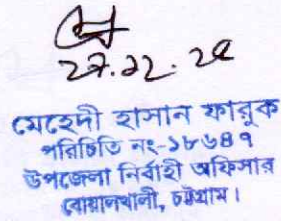 ২৭.১২.২৫
মেহেদী হাসান ফারুক
পরিচিতি নং-১৮৬৪৭
উপজেলা নির্বাহী অফিসার
বোয়ালখালী, চট্টগ্রাম।